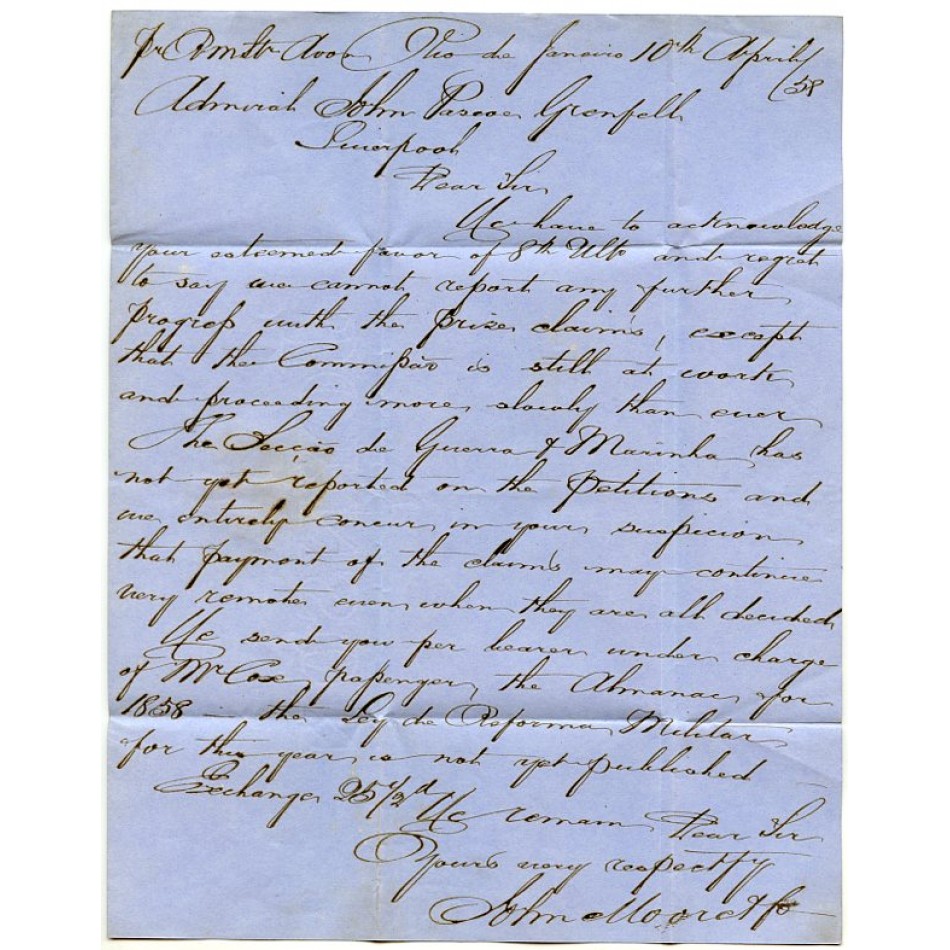 pr R mStr Avon Rio de Janeiro 10th April/58
Admiral John Pascoe Grenfell
Liverpool
Dear Sir
We have to acknowledge
your esteemed favor of 8th Ulto and regret
to say we cannot report any further
progress with the prize claims, except
that the Commissão is still at work
and proceeding more slowly than ever
The Secção de Guerra & Marinha has
not yet reported on the Petitions and
we entirely concur in your suspicion
that payment of the claims may continue
very remote even when they are all decided
We send you per bearer under charge
of Mr Cox, passenger, the Almanac for
1858 – the Ley de Reforma Militar
for this year is not yet published
Exchange 25 1/2d We remain Dear Sir
Yours very respectfy
John Moore & Co